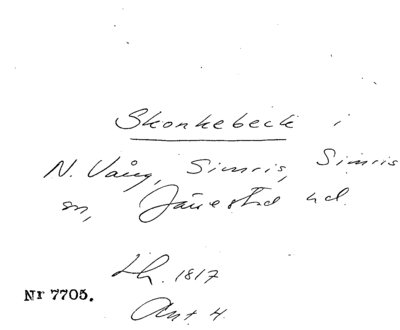 Skonkebeck i
N. Vång, Simris, Simris
sn, Järrestad hd.
Lh. 1817
Nr 7705.
Ant 4.